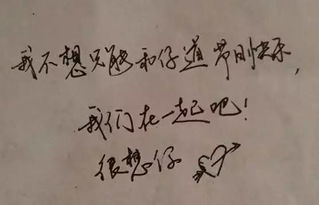 我不想只能和仔道节日快乐,
我们在一起吧!
很想仔